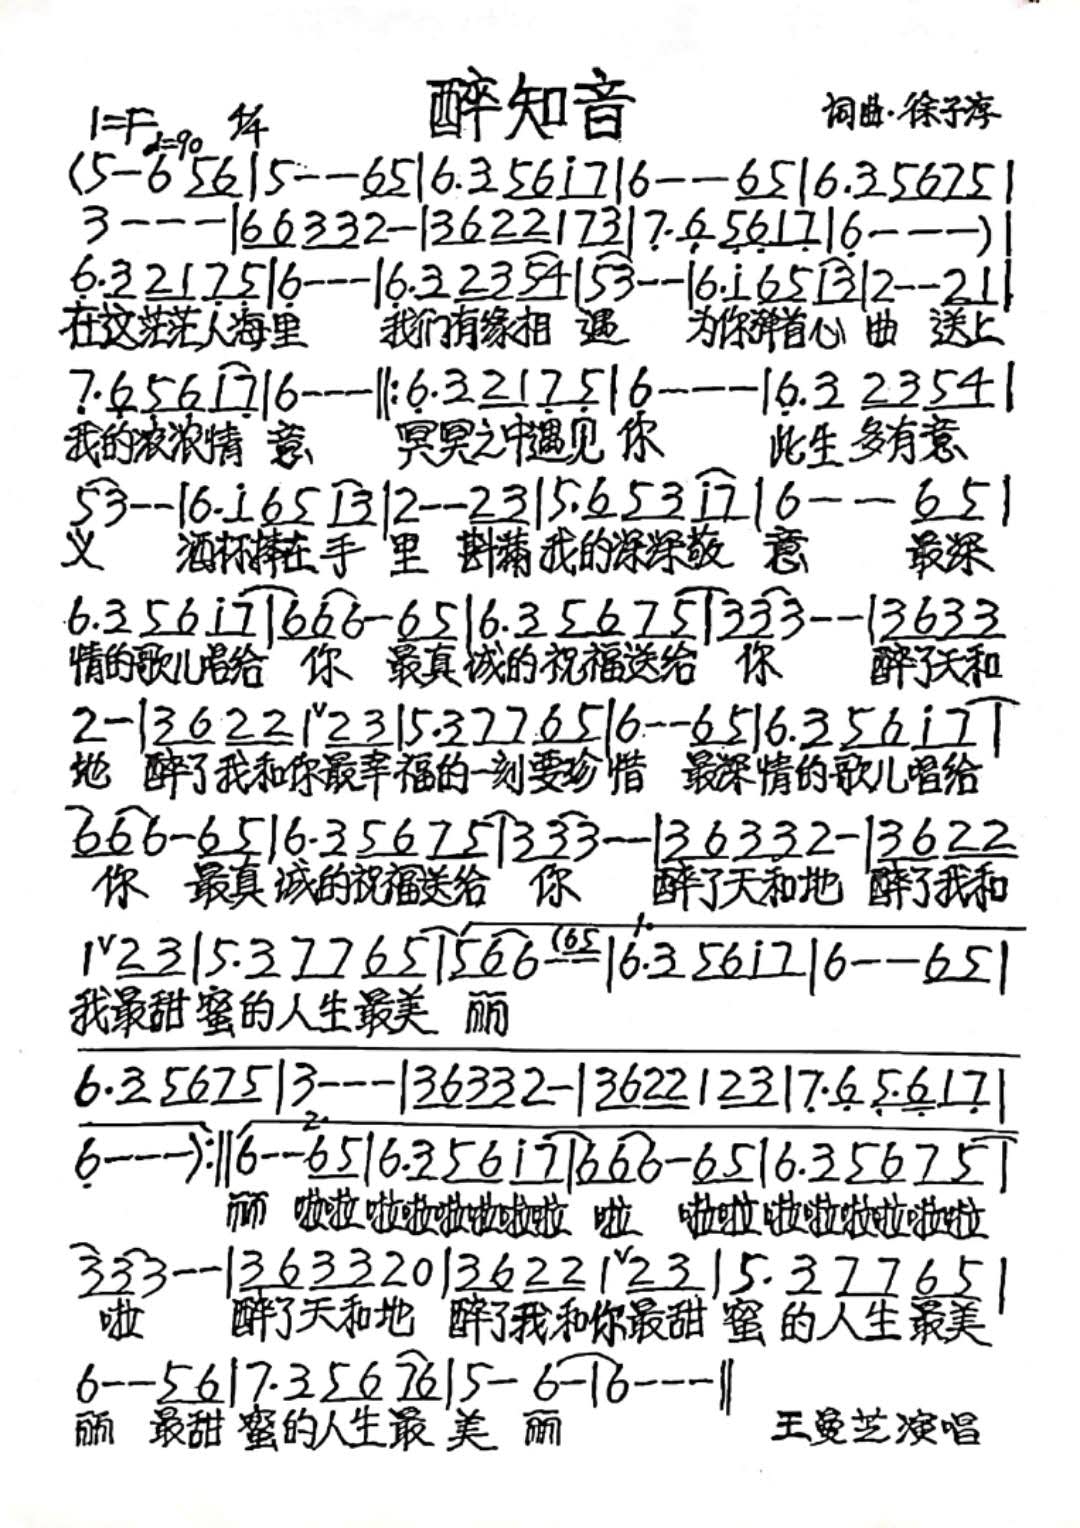 醉知音
1=F 4/4 ♩=90 词曲·徐子淳
(5-6 56|5---65|6.3 56i7|6---65|6.35675|
3----|66332-|36221 73|7.6 5617|6----)|
6.32175|6---|6.32354|53--|6.i6513|2--21|
在这茫茫人海里 我们有缘相 遇 为你弹首心 曲 送上
7.656i7|6---‖:6.32175|6----|6.3 2354|
我的浓浓情 意 冥冥之中遇见 你 此生 多有意
53--|6.i6513|2--23|5.653i7|6-- 65|
义 酒杯捧在手 里 斟满我的深深敬 意 最深
6.3561̇7|666-65|6.35675|333--|3633
情的歌儿唱给 你 最真诚的祝福送给 你 醉了天和
2-|36221ᵛ23|5.37765|6--65|6.3561̇7|
地 醉了我和你最幸福的一刻要珍惜 最深情的歌儿唱给
666-65|6.35675|333--|36332-|3622
你 最真诚的祝福送给 你 醉了天和地 醉了我和
1ᵛ23|5.37765|566--(65|1.6.35617|6--65|
我最甜蜜的人生最美 丽
6.35675|3---|36332-|3622123|7.65.617|
6----):‖2.6--65|6.35617|666-65|6.35675|
丽 啦啦啦啦啦啦啦啦 啦 啦啦啦啦啦啦啦啦
333--|363320|36221ᵛ23|5.377665|
啦 醉了天和地 醉了我和你最甜蜜的人生最美
6--56|7.35676|5-6-|6----‖
丽 最甜蜜的人生最 美 丽 王曼芝演唱